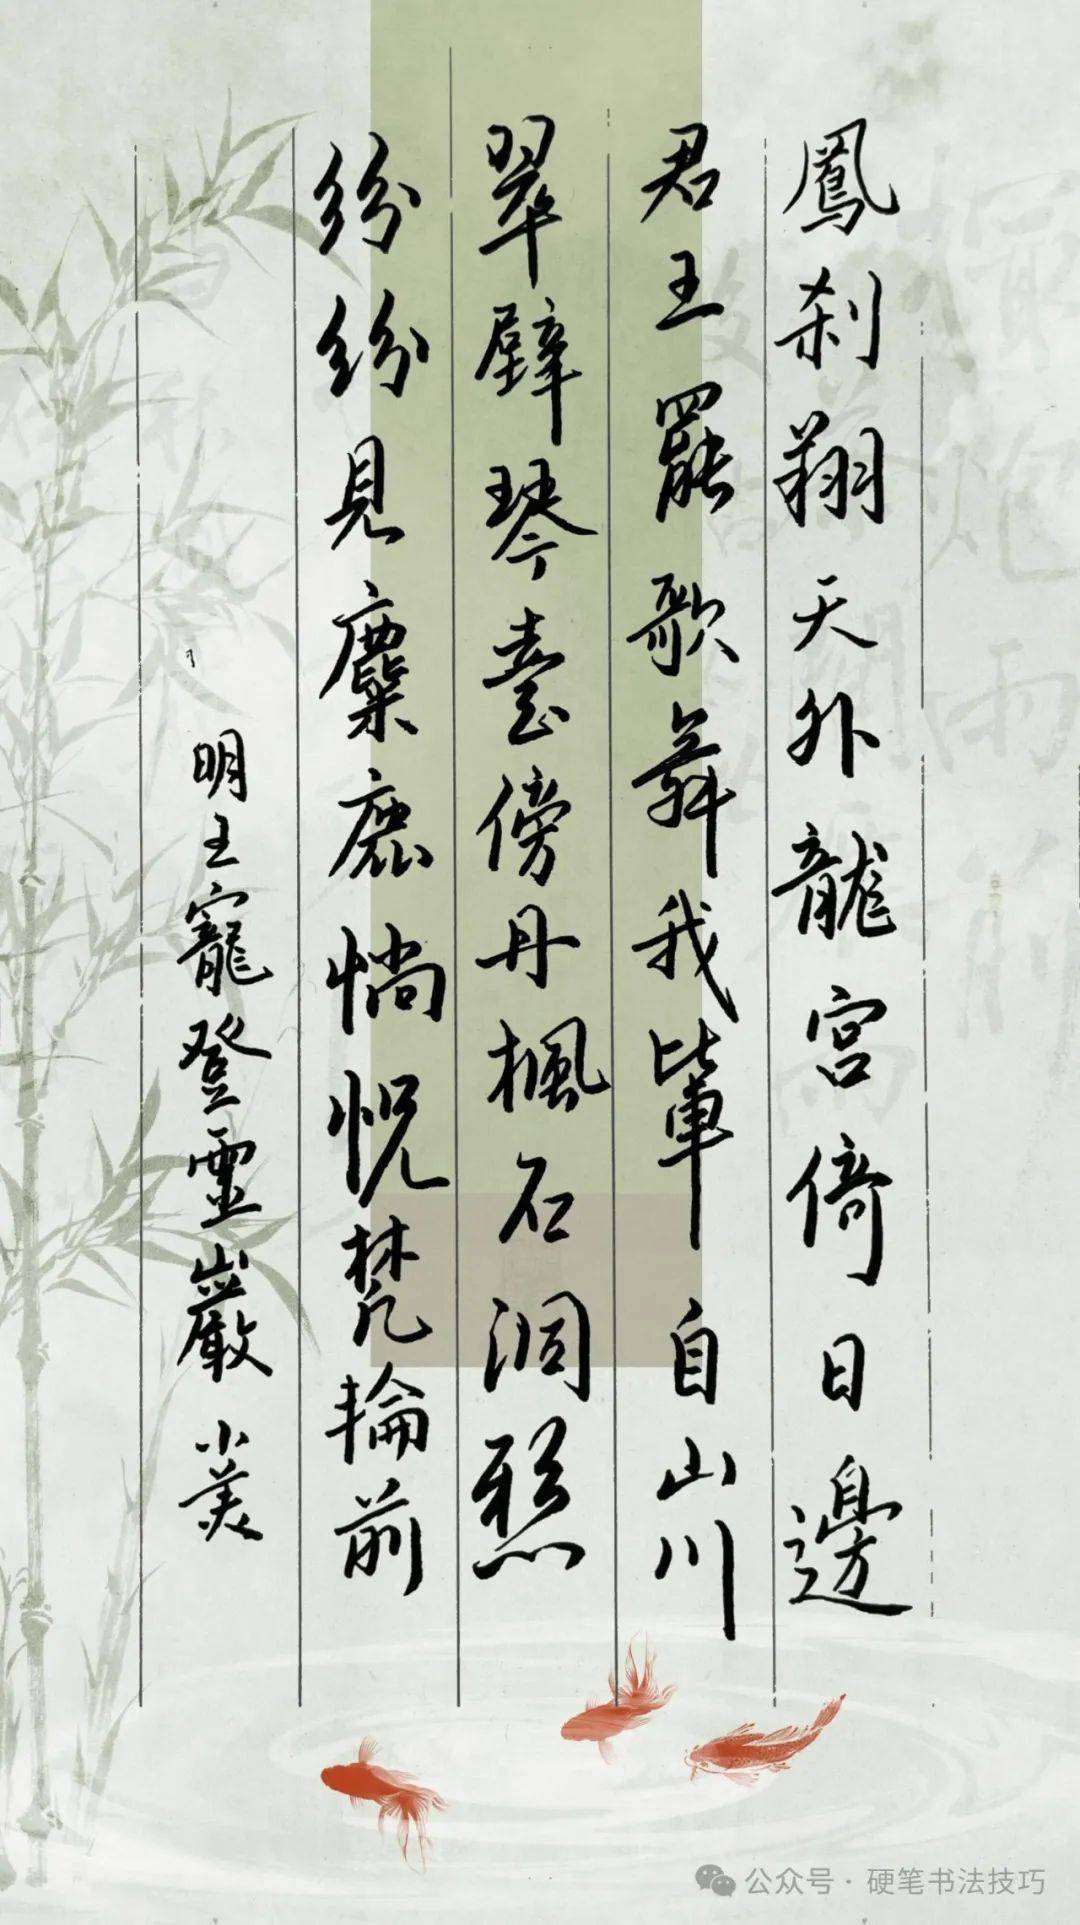 鳳剎翔天外龍宮倚日邊
君王罷歌舞我輩自山川
翠壁琴臺傍丹楓石洞懸
紛紛見麋鹿惝怳梵輪前
明王寵登靈巖 小美
公众号·硬笔书法技巧